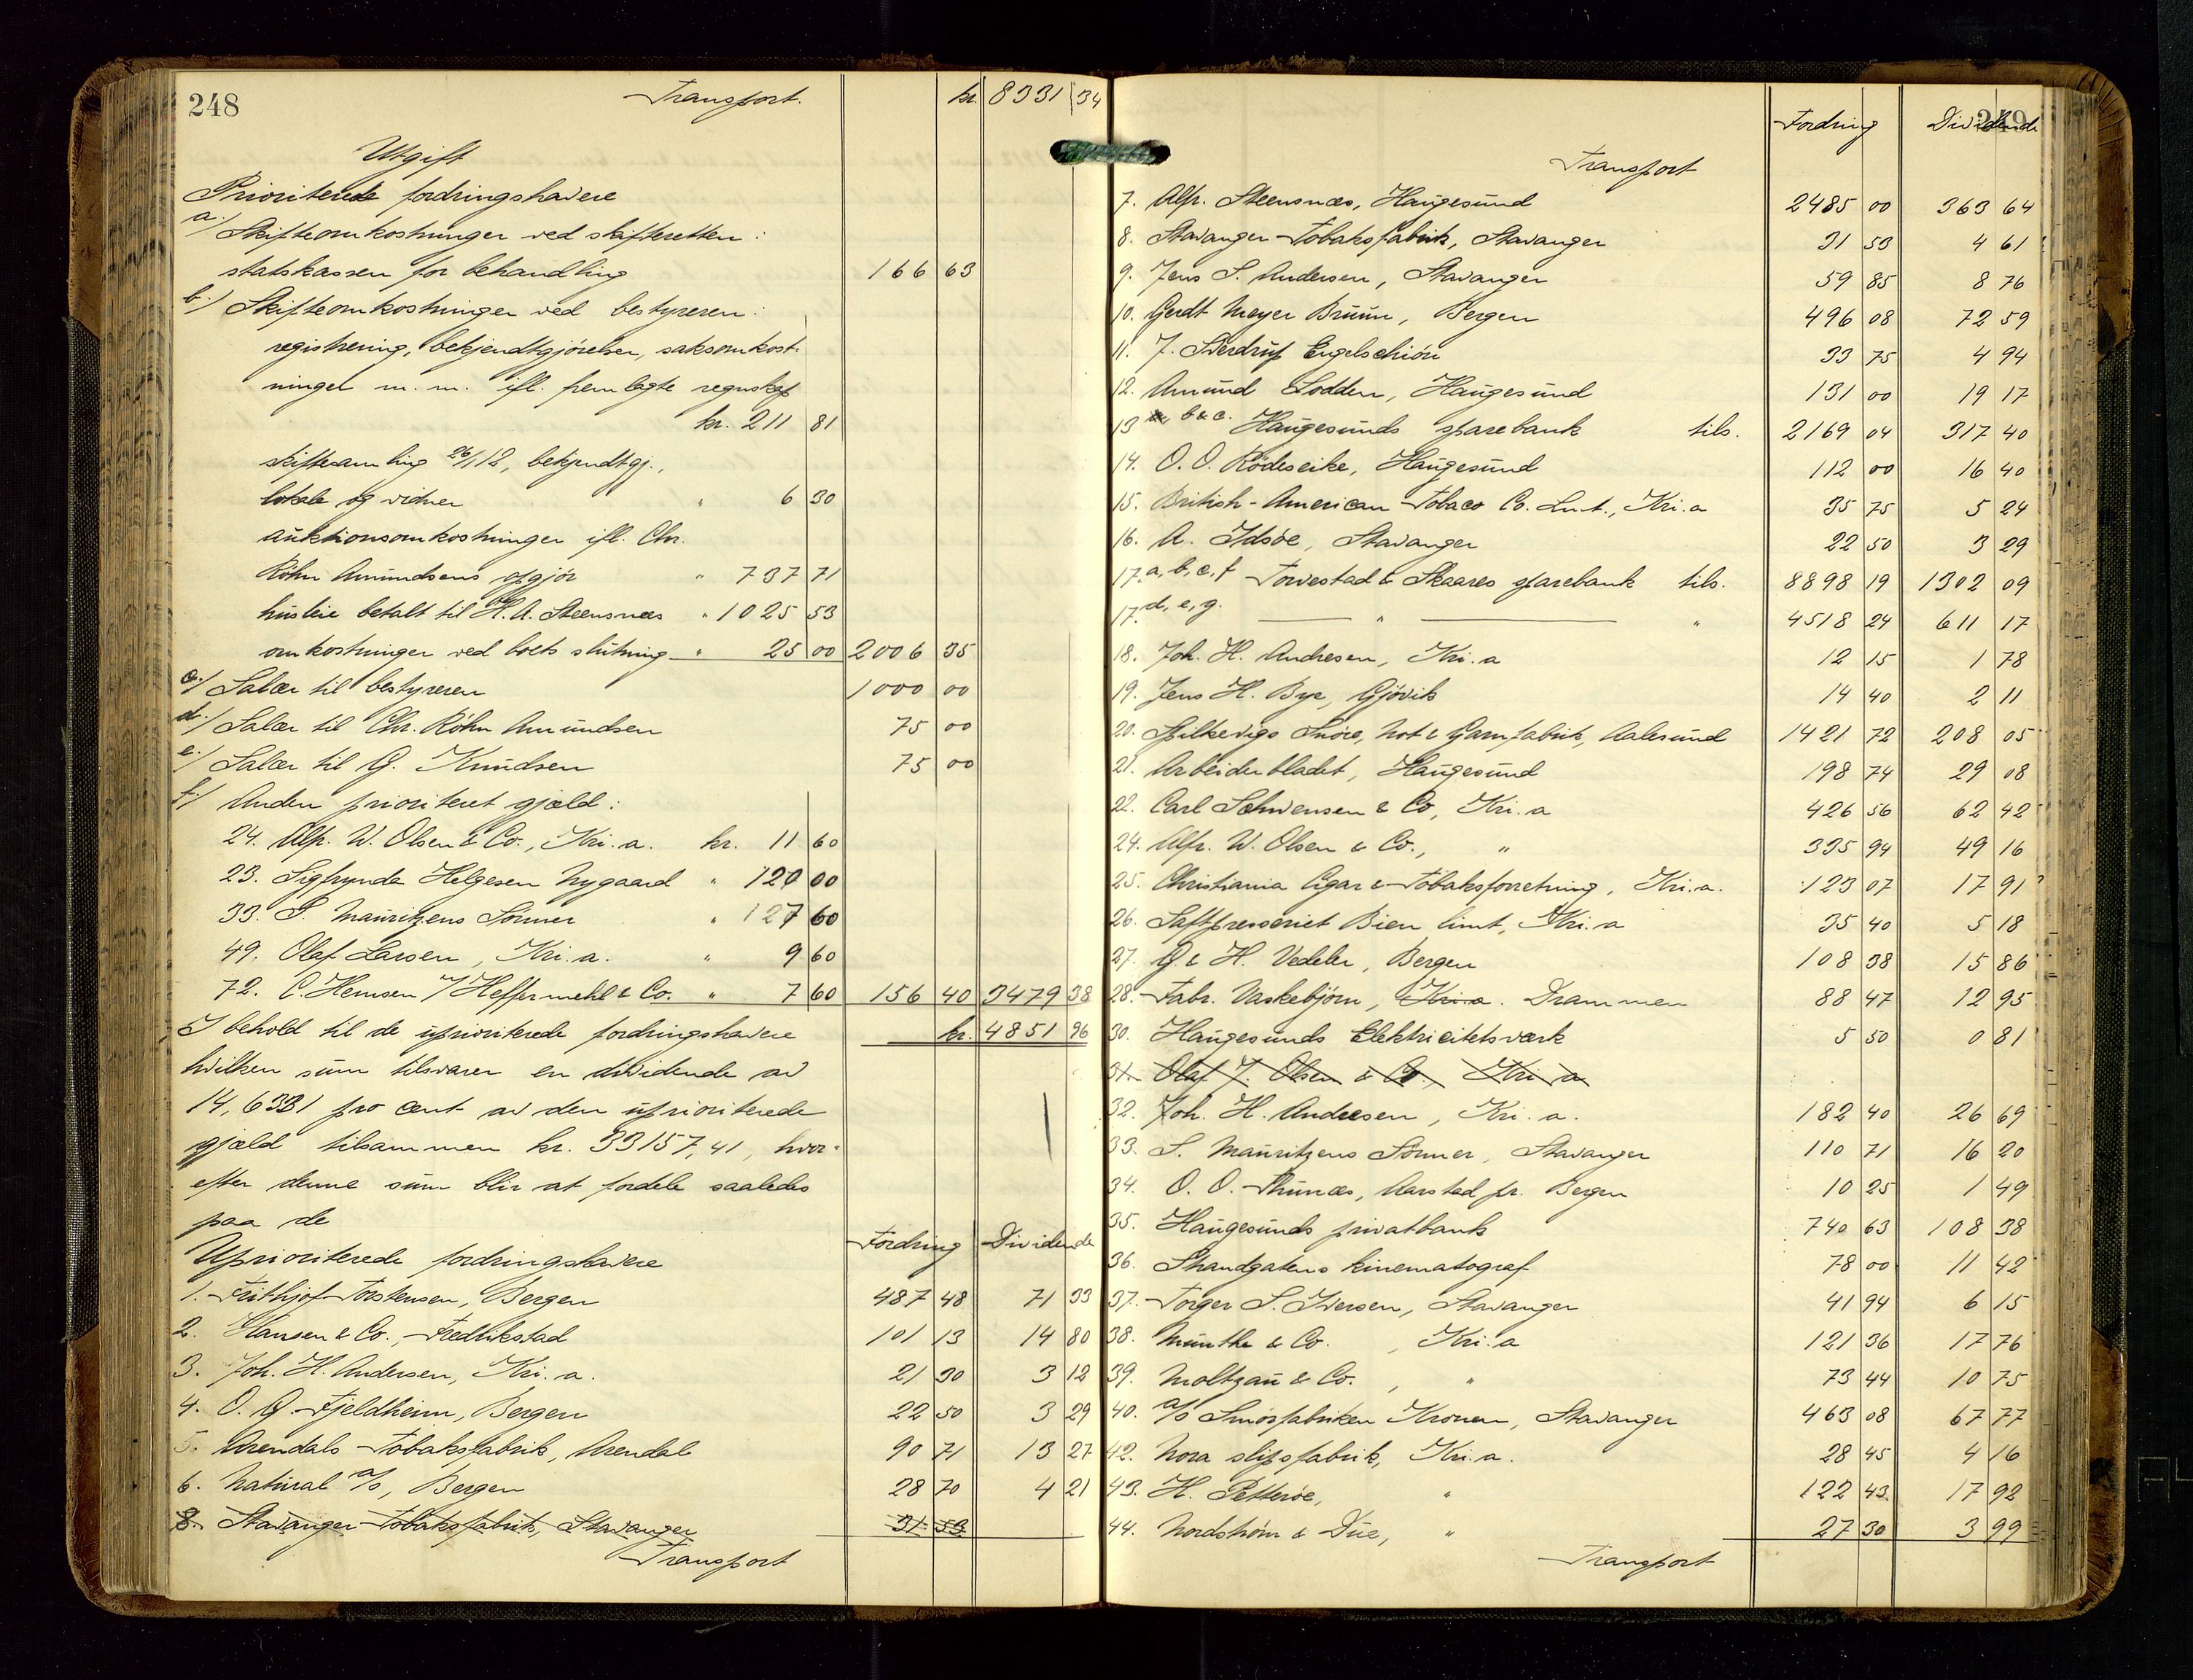 248
Transport. kr. 8331 34
Utgift
Prioriterede fordringshavere
a./ Skifteomkostninger ved skifteretten:
statskassen for behandling 166 63
b./ Skifteomkostninger ved bestyreren:
registrering, bekjendtgjørelser, saksomkost-
ninger m. m. ifl. fremlagte regnskap
kr. 211 81
skiftesamling 26/1 12, bekjendtgj.,
lokale og vidner " 6 30
auktionsomkostninger ifl. Chr.
Röhn Amundsens opgjør " 737 71
husleie betalt til H. A. Steensnæs " 1025 53
omkostninger ved boets slutning " 25 00 2006 35
c./ Salær til bestyreren 1000 00
d./ Salær til Chr. Röhn Amundsen 75 00
e./ Salær til G. Knudsen 75 00
f./ Anden prioriteret gjæld:
24. Alfr. W. Olsen & Co., Kri.a. kr. 11 60
23. Sigfrynda Helgesen Nygaard " 120 00
33. S. Mauritzens Sønner " 127 60
49. Olaf Larsen, Kri.a. " 9 60
72. C. Hemsen / Heffermehl & Co. " 7 60 156 40 3479 38
I behold til de uprioriterede fordringshavere kr. 4851 96
hvilken sum tilsvarer en dividende av
14,6331 pro cent av den uprioriterede
gjæld tilsammen kr. 33157,41, hvor-
efter denne sum blir at fordele saaledes
paa de
Uprioriterede fordringshavere Fordring Dividende
1. Frithjof Torstensen, Bergen 487 48 71 33
2. Hansen & Co., Fredrikstad 101 13 14 80
3. Joh. H. Andersen, Kri.a. 21 30 3 12
4. O. G. Fjeldheim, Bergen 22 50 3 29
5. Arendals Tobaksfabrik, Arendal 90 71 13 27
6. Natural A/S, Bergen 28 70 4 21
8. Stavanger Tobaksfabrik, Stavanger 31 53
Transport
249
Fordring Dividende
Transport
7. Alfr. Steensnæs, Haugesund 2485 00 363 64
8. Stavanger Tobaksfabrik, Stavanger 31 53 4 61
9. Jens S. Andersen, Stavanger 59 85 8 76
10. Gerdt Meyer Bruun, Bergen 496 08 72 59
11. J. Sverdrup Engelschiön 33 75 4 94
12. Amund Lodden, Haugesund 131 00 19 17
13 b & c. Haugesunds sparebank tils. 2169 04 317 40
14. O. O. Rödeseike, Haugesund 112 00 16 40
15. British-American Tobaco Co. Lmt., Kri.a 35 75 5 24
16. A. Idsöe, Stavanger 22 50 3 29
17. a, b, c, f Torvestad & Skaares sparebank tils. 8898 19 1302 09
17. d, e, g. " " 4518 24 611 17
18. Joh. H. Andresen, Kri.a 12 15 1 78
19. Jens H. Bye, Gjövik 14 40 2 11
20. Spilkevigs Snöre, Not & Garnfabrik, Aalesund 1421 72 208 05
21. Arbeiderbladet, Haugesund 198 74 29 08
22. Carl Schwensen & Co, Kri.a 426 56 62 42
24. Alfr. W. Olsen & Co., " 335 94 49 16
25. Christiania Cigar & Tobaksforretning, Kri.a. 123 07 17 91
26. Saftpresseriet Bien limt, Kri.a 35 40 5 18
27. G. & H. Vedeler, Bergen 108 38 15 86
28. Fabr. Vaskebjörn, Kri.a. Drammen 88 47 12 95
30. Haugesunds Elektricitetsværk 5 50 0 81
31. Olaf J. Olsen & Co., Kri.a
32. Joh. H. Andresen, Kri.a. 182 40 26 69
33. S. Mauritzens Sönner, Stavanger 110 71 16 20
34. O. O. Thunæs, Aarstad pr. Bergen 10 25 1 49
35. Haugesunds privatbank 740 63 108 38
36. Strandgatens kinematograf 78 00 11 42
37. Torger S. Iversen, Stavanger 41 94 6 15
38. Munthe & Co. , Kri.a 121 36 17 76
39. Moltzau & Co. , " 73 44 10 75
40. A/S Smörfabriken Kronen, Stavanger 463 08 67 77
42. Nora slipsfabrik, Kri.a. 28 45 4 16
43. H. Petteröe, " 122 43 17 92
44. Nordström & Due, " 27 30 3 99
Transport